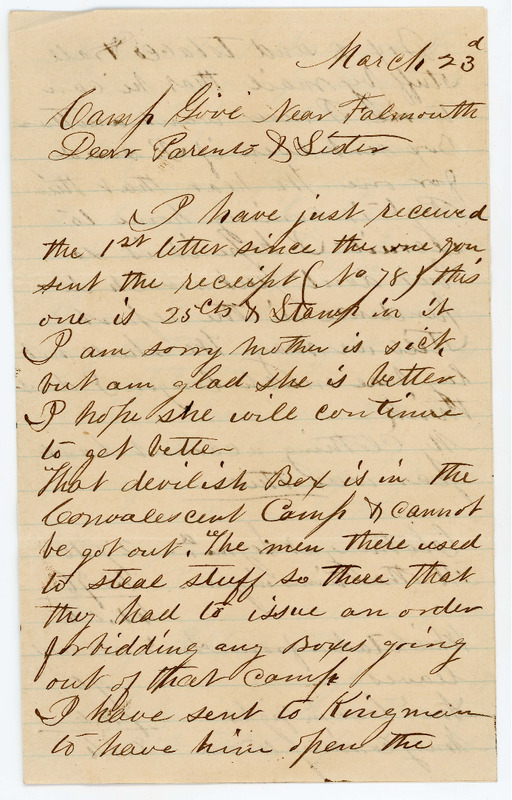 March 23d
Camp Gove Near Falmouth
Dear Parents & Sister
I have just received
the 1st letter since the one you
sent the receipt (No 78) this
one is 25cts & Stamp in it
I am sorry mother is sick,
but am glad she is better
I hope she will continue
to get better
That devilish Box is in the
Convalescent Camp & cannot
be got out. The men there used
to steal stuff so there that
they had to issue an order
forbidding any Boxes going
out of that Camp
I have sent to Kingman
to have him open the